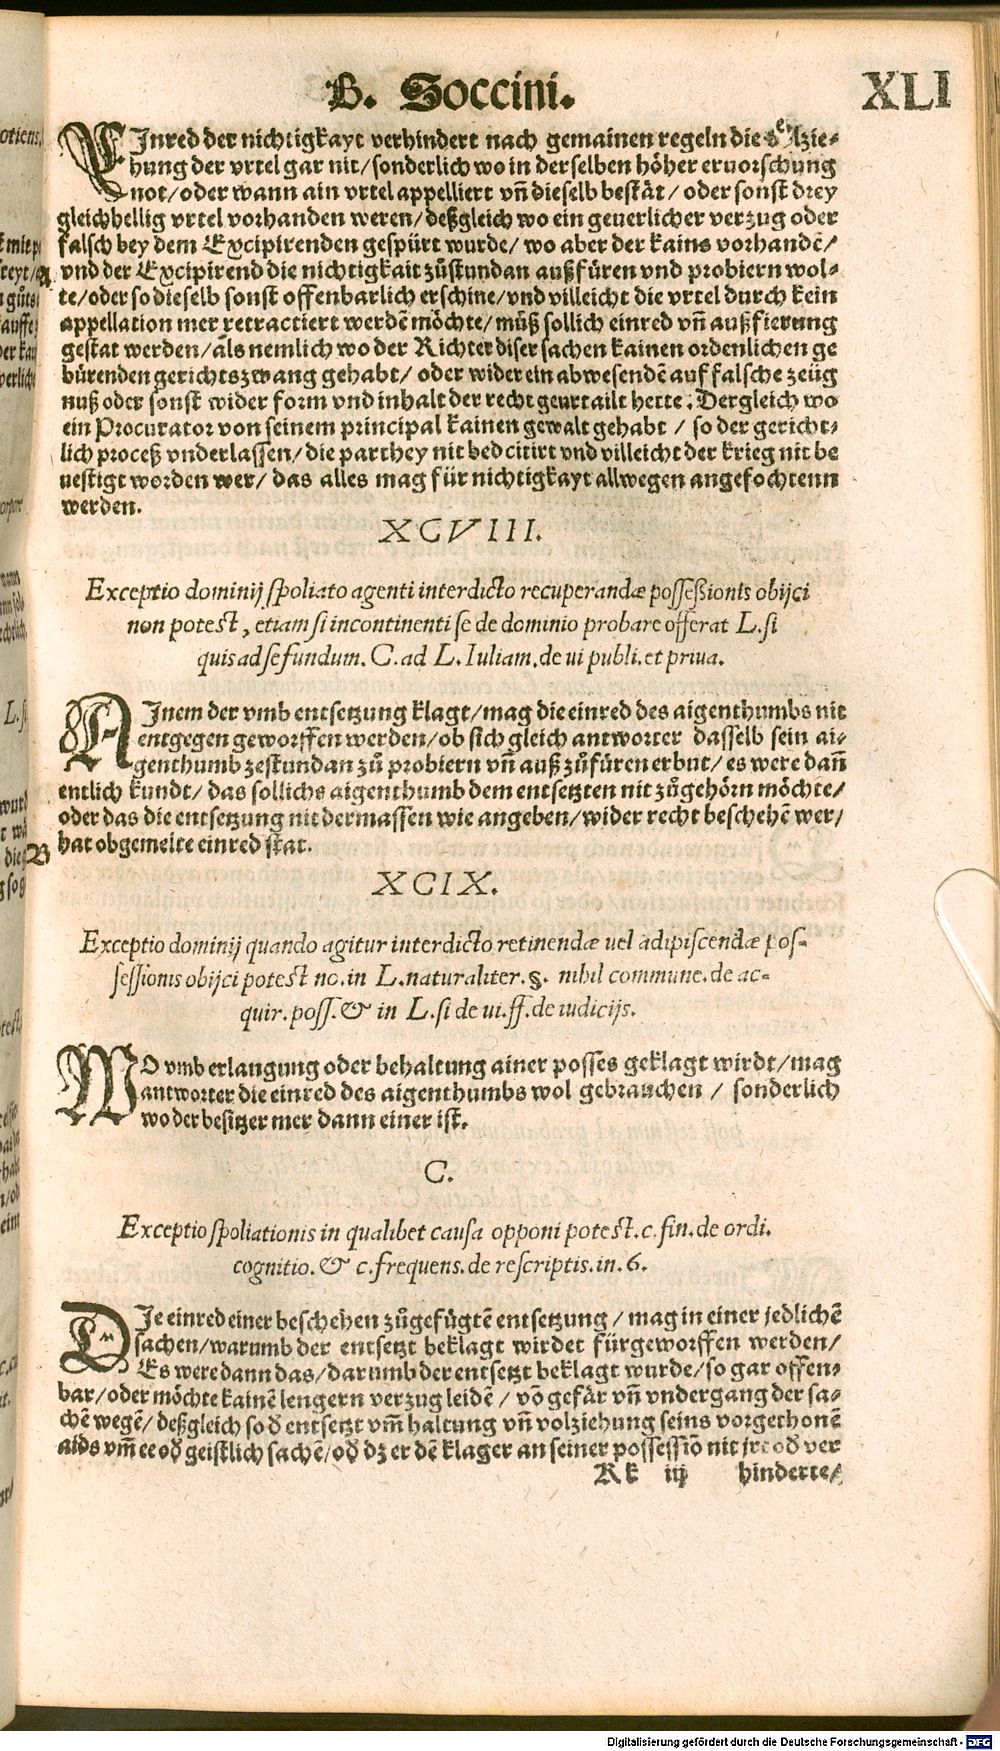 B. Soccini. XLI
EInred der nichtigkayt verhindert nach gemainen regeln die volzie-
hung der vrtel gar nit/sonderlich wo in derselben höher eruorschung
not/oder wann ain vrtel appelliert vñ dieselb bestät/oder sonst drey
gleichhellig vrtel vorhanden weren/deßgleich wo ein geuerlicher verzug oder
falsch bey dem Excipirenden gespürt wurde/wo aber der kains vorhandē/
vnd der Excipirend die nichtigkait zůstundan außfüren vnd probiern wol-
te/oder so dieselb sonst offenbarlich erschine/vnd villeicht die vrtel durch kein
appellation mer retractiert werdē möchte/můß sollich einred vñ außfierung
gestat werden/als nemlich wo der Richter diser sachen kainen ordenlichen ge
bürenden gerichtszwang gehabt/oder wider ein abwesendē auf falsche zeüg
nuß oder sonst wider form vnd inhalt der recht geurtailt hette. Dergleich wo
ein Procurator von seinem principal kainen gewalt gehabt/so der gericht-
lich proceß vnderlassen/die parthey nit bedcitirt vnd villeicht der krieg nit be
uestigt worden wer/das alles mag für nichtigkayt allwegen angefochtenn
werden.
XCVIII.
Exceptio dominij spoliato agenti interdicto recuperandæ possessionis obijci
non potest, etiam si incontinenti se de dominio probare offerat L. si
quis ad se fundum. C. ad L. Iuliam. de ui publi. et priua.
AInem der vmb entsetzung klagt/mag die einred des aigenthumbs nit
entgegen geworffen werden/ob sich gleich antworter dasselb sein ai-
genthumb zestundan zů probiern vñ auß zůfüren erbut/es were dañ
entlich kundt/das sollichs aigenthumb dem entsetzten nit zůgehörn möchte/
oder das die entsetzung nit dermassen wie angeben/wider recht beschehē wer/
B
hat obgemelte einred stat.
XCIX.
Exceptio dominij quando agitur interdicto retinendæ uel adipiscendæ pos-
sessionis obijci potest no. in L. naturaliter. §. nihil commune. de ac-
quir. poss. & in L. si de ui. ff. de iudicijs.
WO vmb erlangung oder behaltung ainer posses geklagt wirdt/mag
antworter die einred des aigenthumbs wol gebrauchen/sonderlich
wo der besitzer mer dann einer ist.
C.
Exceptio spoliationis in qualibet causa opponi potest. c. fin. de ordi.
cognitio. & c. frequens. de rescriptis. in. 6.
DIe einred einer beschehen zůgefügtē entsetzung/mag in einer jedlichē
sachen/warumb der entsetzt beklagt wirdet fürgeworffen werden/
Es were dann das/darumb der entsetzt beklagt wurde/so gar offen-
bar/oder möchte kainē lengern verzug leidē/vō gefär vñ vndergang der sa-
chē wegē/deßgleich so ð entsetzt vm̄ haltung vñ volziehung seins vorgethonē
aids vm̄ ee oð geistlich sachē/oð dz er dē klager an seiner possessiō nit jrt oð ver
Kk iij hinderte/
Digitalisierung gefördert durch die Deutsche Forschungsgemeinschaft - DFG